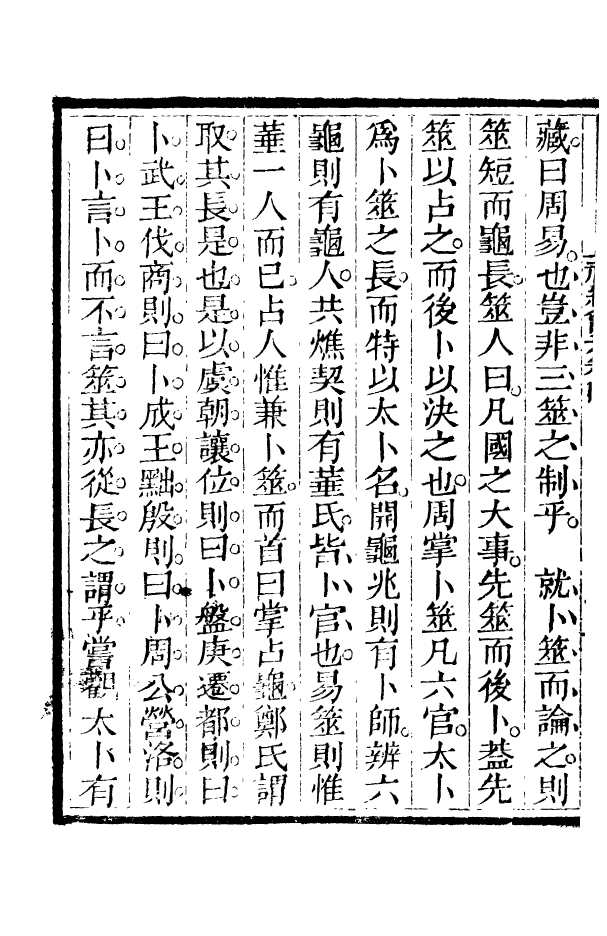 藏曰周易也豈非三筮之制乎　就卜筮而論之則
筮短而龜長筮人曰凡國之大事先筮而後卜葢先
筮以占之而後卜以決之也周掌卜筮凡六官太卜
爲卜筮之長而特以太卜名開龜兆則有卜師辨六
龜則有龜人共燋契則有菙氏皆卜官也易筮則惟
菙一人而已占人惟兼卜筮而首曰掌占龜鄭氏謂
取其長是也是以虞朝讓位則曰卜盤庚遷都則曰
卜武王伐商則曰卜成王黜殷則曰卜周公營洛則
曰卜言卜而不言筮其亦從長之謂乎嘗觀太卜有